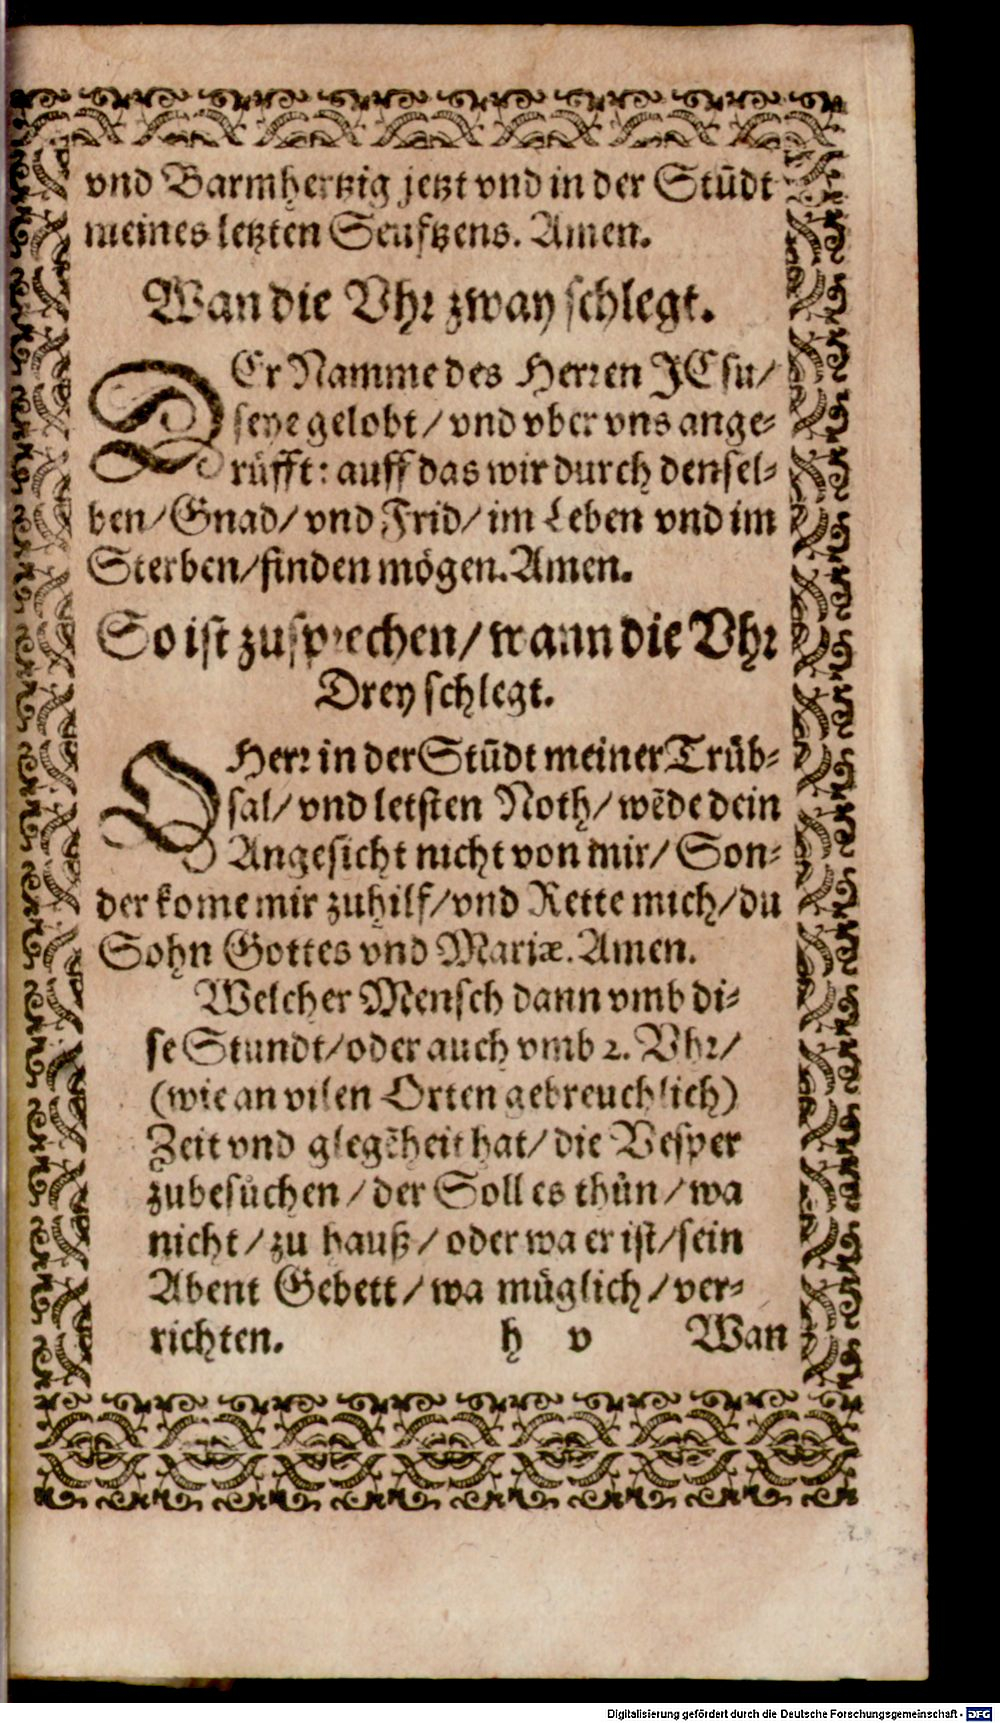 vnd Barmhertzig jetzt vnd in der Stūdt
meines letzten Seuftzens. Amen.
Wan die Vhr zway schlegt.
DEr Namme des Herren JEsu/
seye gelobt/ vnd vber vns ange-
rüfft: auff das wir durch densel-
ben/ Gnad/ vnd Frid/ im Leben vnd im
Sterben/ finden mögen. Amen.
So ist zusprechen/ wann die Vhr
Drey schlegt.
O Herr in der Stūdt meiner Trüb-
sal/ vnd letsten Noth/ wēde dein
Angesicht nicht von mir/ Son-
der kome mir zuhilf/ vnd Rette mich/ du
Sohn Gottes vnd Mariæ. Amen.
Welcher Mensch dann vmb di-
se Stundt/ oder auch vmb 2. Vhr/
(wie an vilen Orten gebreuchlich)
Zeit vnd glegēheit hat/ die Vesper
zubesůchen/ der Soll es thůn/ wa
nicht/ zu hauß/ oder wa er ist/ sein
Abent Gebett/ wa müglich/ ver-
richten. h v Wan
Digitalisierung gefördert durch die Deutsche Forschungsgemeinschaft - DFG